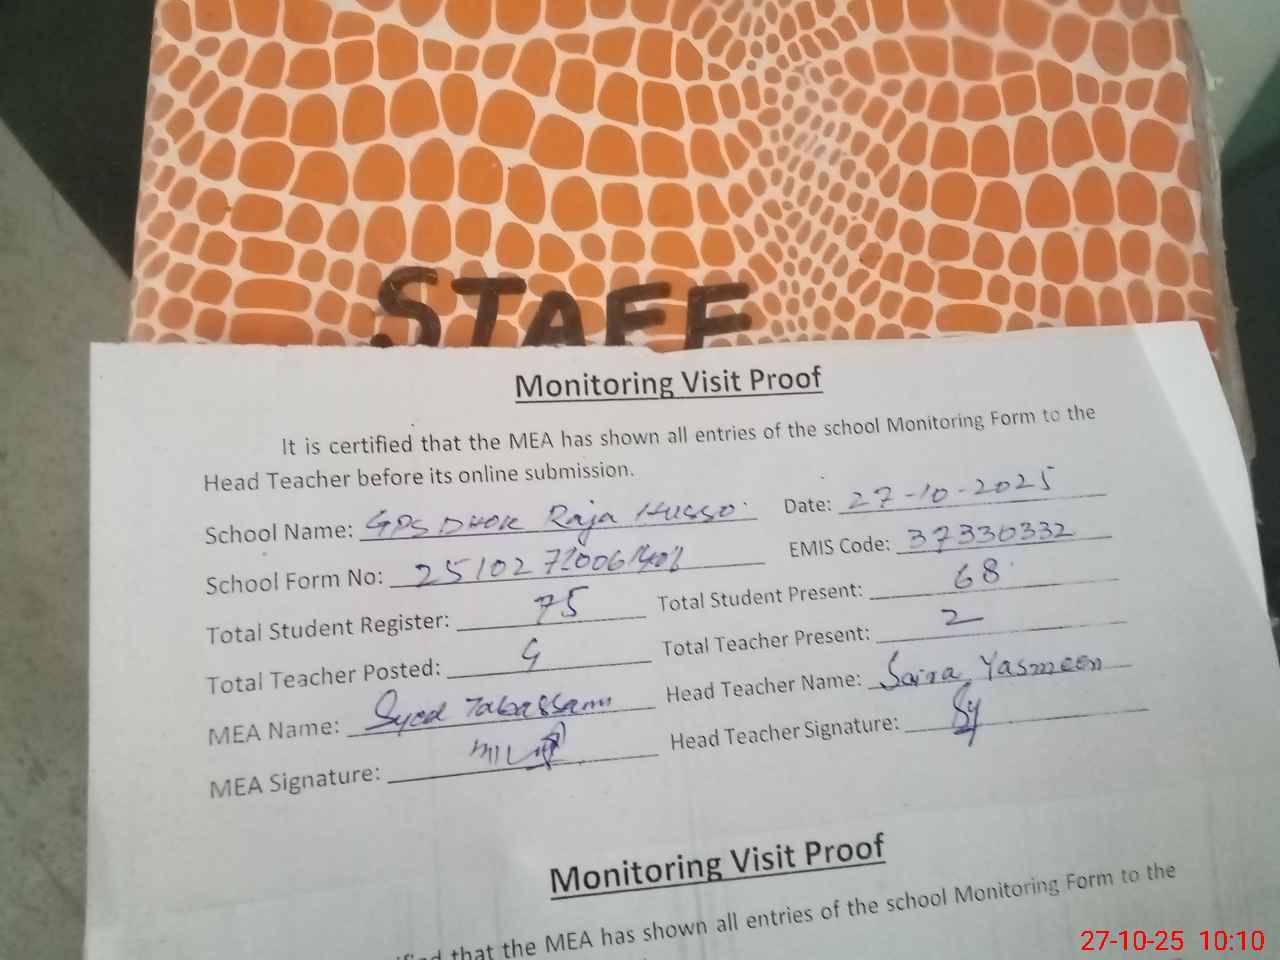 STAFF
Monitoring Visit Proof
It is certified that the MEA has shown all entries of the school Monitoring Form to the
Head Teacher before its online submission.
School Name: GPS Dhok Raja Husso Date: 27-10-2025
School Form No: EMIS Code: 37330332
Total Student Register: 75 Total Student Present: 68
Total Teacher Posted: Total Teacher Present: 2
MEA Name: Syed Tabassam Head Teacher Name: Saira Yasmeen
MEA Signature: Head Teacher Signature: Sy
Monitoring Visit Proof
that the MEA has shown all entries of the school Monitoring Form to the
27-10-25 10:10